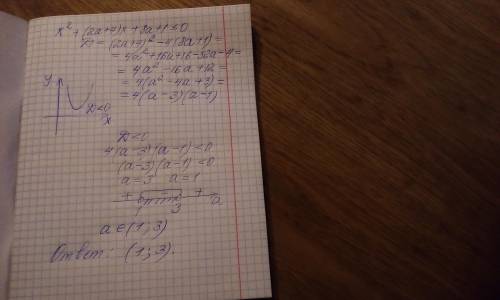 x² + (2a+4)x + 8a+1 ≤ 0
D = (2a+4)² - 4(8a+1) =
= 4a² + 16a + 16 - 32a - 4 =
= 4a² - 16a + 12 =
= 4(a² - 4a + 3) =
= 4(a-3)(a-1)
y
D<0
x
D<0
4(a-3)(a-1)<0
(a-3)(a-1)<0
a=3 a=1
+ - + a
1 3
a∈(1;3)
Ответ: (1;3).